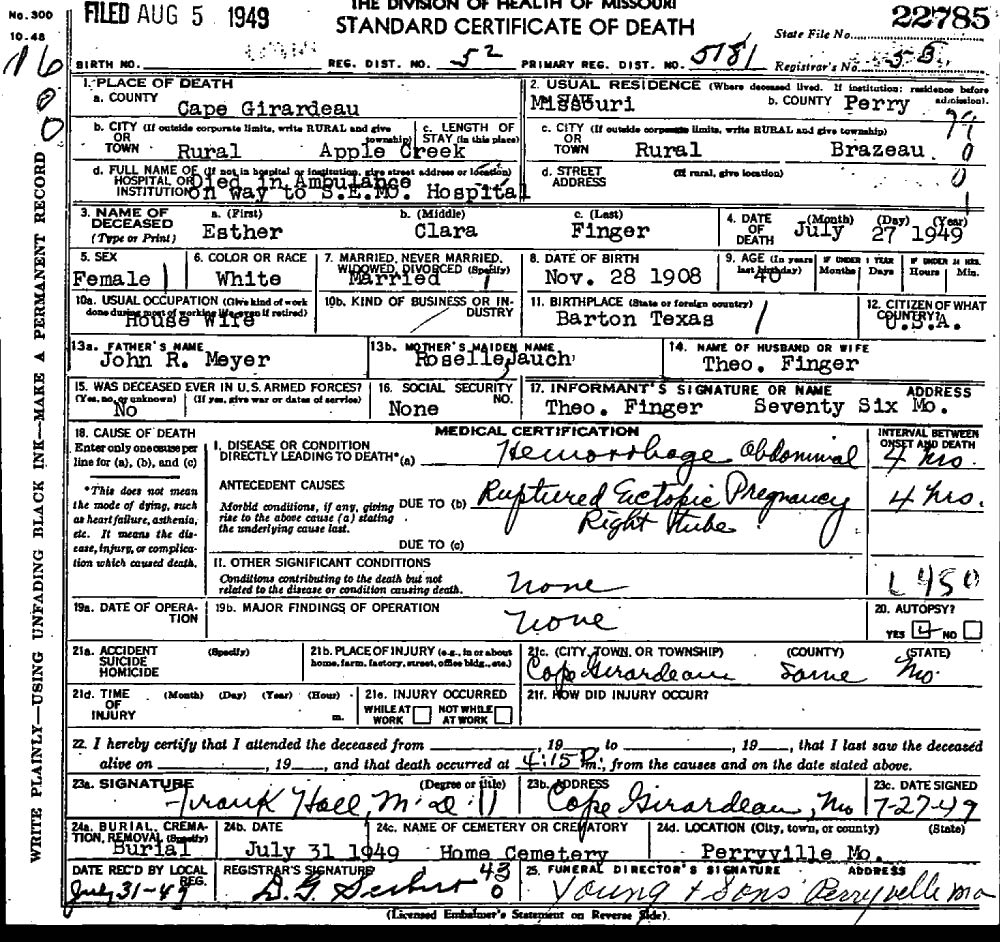 No. 300
10-48
FILED AUG 5 1949
THE DIVISION OF HEALTH OF MISSOURI
STANDARD CERTIFICATE OF DEATH
22785
State File No.
BIRTH NO.
REG. DIST. NO. 52
PRIMARY REG. DIST. NO. 5181
Registrar's No. 55
1. PLACE OF DEATH
a. COUNTY Cape Girardeau
2. USUAL RESIDENCE (Where deceased lived. If institution: residence before admission).
a. STATE Missouri
b. COUNTY Perry
b. CITY (If outside corporate limits, write RURAL and give township)
OR TOWN Rural Apple Creek
c. LENGTH OF STAY (in this place)
c. CITY (If outside corporate limits, write RURAL and give township)
OR TOWN Rural Brazeau
d. FULL NAME OF (If not in hospital or institution, give street address or location)
HOSPITAL OR INSTITUTION Died in Ambulance on way to S.E.Mo. Hospital
d. STREET ADDRESS (If rural, give location)
3. NAME OF DECEASED (Type or Print)
a. (First) Esther
b. (Middle) Clara
c. (Last) Finger
4. DATE OF DEATH (Month) (Day) (Year) July 27 1949
5. SEX Female
6. COLOR OR RACE White
7. MARRIED, NEVER MARRIED, WIDOWED, DIVORCED (Specify) Married
8. DATE OF BIRTH Nov. 28 1908
9. AGE (In years last birthday) 40
IF UNDER 1 YEAR Months Days
IF UNDER 24 HRS. Hours Min.
10a. USUAL OCCUPATION (Give kind of work done during most of working life, even if retired) House Wife
10b. KIND OF BUSINESS OR INDUSTRY
11. BIRTHPLACE (State or foreign country) Barton Texas
12. CITIZEN OF WHAT COUNTRY? U.S.A.
13a. FATHER'S NAME John R. Meyer
13b. MOTHER'S MAIDEN NAME Roselle Jauch
14. NAME OF HUSBAND OR WIFE Theo. Finger
15. WAS DECEASED EVER IN U.S. ARMED FORCES? (Yes, no, or unknown) (If yes, give war or dates of service) No
16. SOCIAL SECURITY NO. None
17. INFORMANT'S SIGNATURE OR NAME ADDRESS
Theo. Finger Seventy Six Mo.
18. CAUSE OF DEATH
Enter only one cause per line for (a), (b), and (c)
*This does not mean the mode of dying, such as heart failure, asthenia, etc. It means the disease, injury, or complication which caused death.
MEDICAL CERTIFICATION
INTERVAL BETWEEN ONSET AND DEATH
I. DISEASE OR CONDITION DIRECTLY LEADING TO DEATH* (a) Hemorrhage Abdominal 4 hrs.
ANTECEDENT CAUSES
Morbid conditions, if any, giving rise to the above cause (a) stating the underlying cause last.
DUE TO (b) Ruptured Ectopic Pregnancy 4 hrs.
Right tube
DUE TO (c)
II. OTHER SIGNIFICANT CONDITIONS
Conditions contributing to the death but not related to the disease or condition causing death.
none
19a. DATE OF OPERATION
19b. MAJOR FINDINGS OF OPERATION
none
20. AUTOPSY?
YES NO
21a. ACCIDENT SUICIDE HOMICIDE (Specify)
21b. PLACE OF INJURY (e.g., in or about home, farm, factory, street, office bldg., etc.)
21c. (CITY, TOWN, OR TOWNSHIP) (COUNTY) (STATE)
Cape Girardeau Same Mo.
21d. TIME OF INJURY (Month) (Day) (Year) (Hour) m.
21e. INJURY OCCURRED
WHILE AT WORK NOT WHILE AT WORK
21f. HOW DID INJURY OCCUR?
22. I hereby certify that I attended the deceased from , 19 , to , 19 , that I last saw the deceased
alive on , 19 , and that death occurred at 4:15 P m., from the causes and on the date stated above.
23a. SIGNATURE (Degree or title)
Frank Hall, M.D.
23b. ADDRESS
Cape Girardeau, Mo
23c. DATE SIGNED
7-27-49
24a. BURIAL, CREMATION, REMOVAL (Specify) Burial
24b. DATE July 31 1949
24c. NAME OF CEMETERY OR CREMATORY Home Cemetery
24d. LOCATION (City, town, or county) (State) Perryville Mo.
DATE REC'D BY LOCAL REG. July 31-49
REGISTRAR'S SIGNATURE
25. FUNERAL DIRECTOR'S SIGNATURE ADDRESS
Young & Sons Perryville Mo
(Licensed Embalmer's Statement on Reverse Side).
WRITE PLAINLY—USING UNFADING BLACK INK—MAKE A PERMANENT RECORD